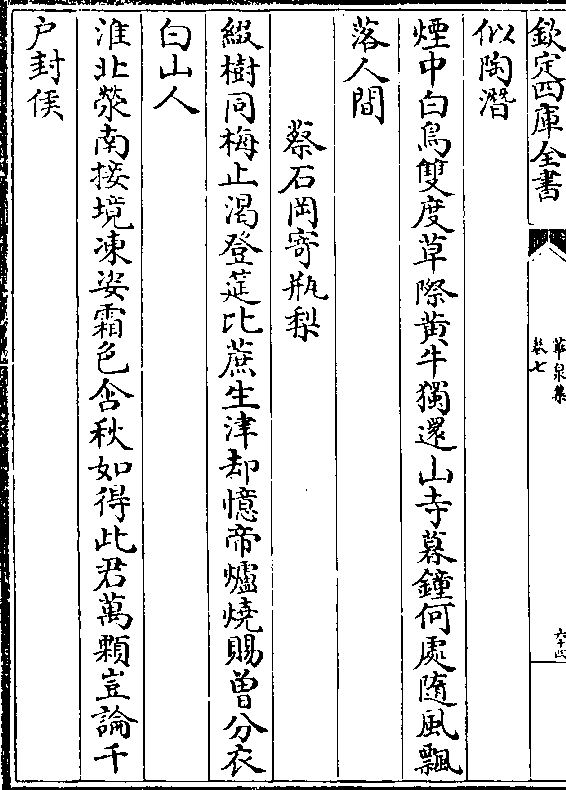 欽定四庫全書
華泉集
卷七
似陶潛
煙中白鳥雙度草際黄牛獨還山寺暮鐘何處随風飄
落人間
蔡石岡寄瓶梨
綴樹同梅止渴登筵比蔗生津却憶帝爐燒賜曽分衣
白山人
淮北滎南接境凍姿霜色含秋如得此君萬顆豈論千
户封侯